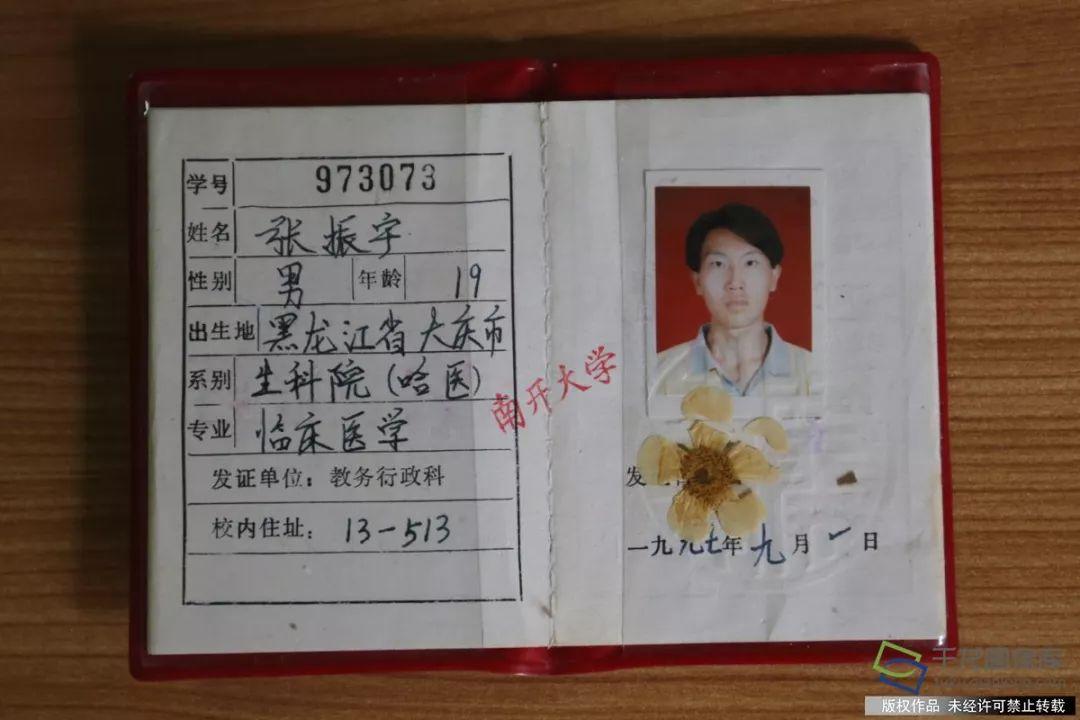 学号 973073
姓名 张振宇
性别 男 年龄 19
出生地 黑龙江省大庆市
系别 生科院(哈医)
专业 临床医学
发证单位：教务行政科
校内住址：13-513
南开大学
发
一九九七年九月一日
版权作品 未经许可禁止转载